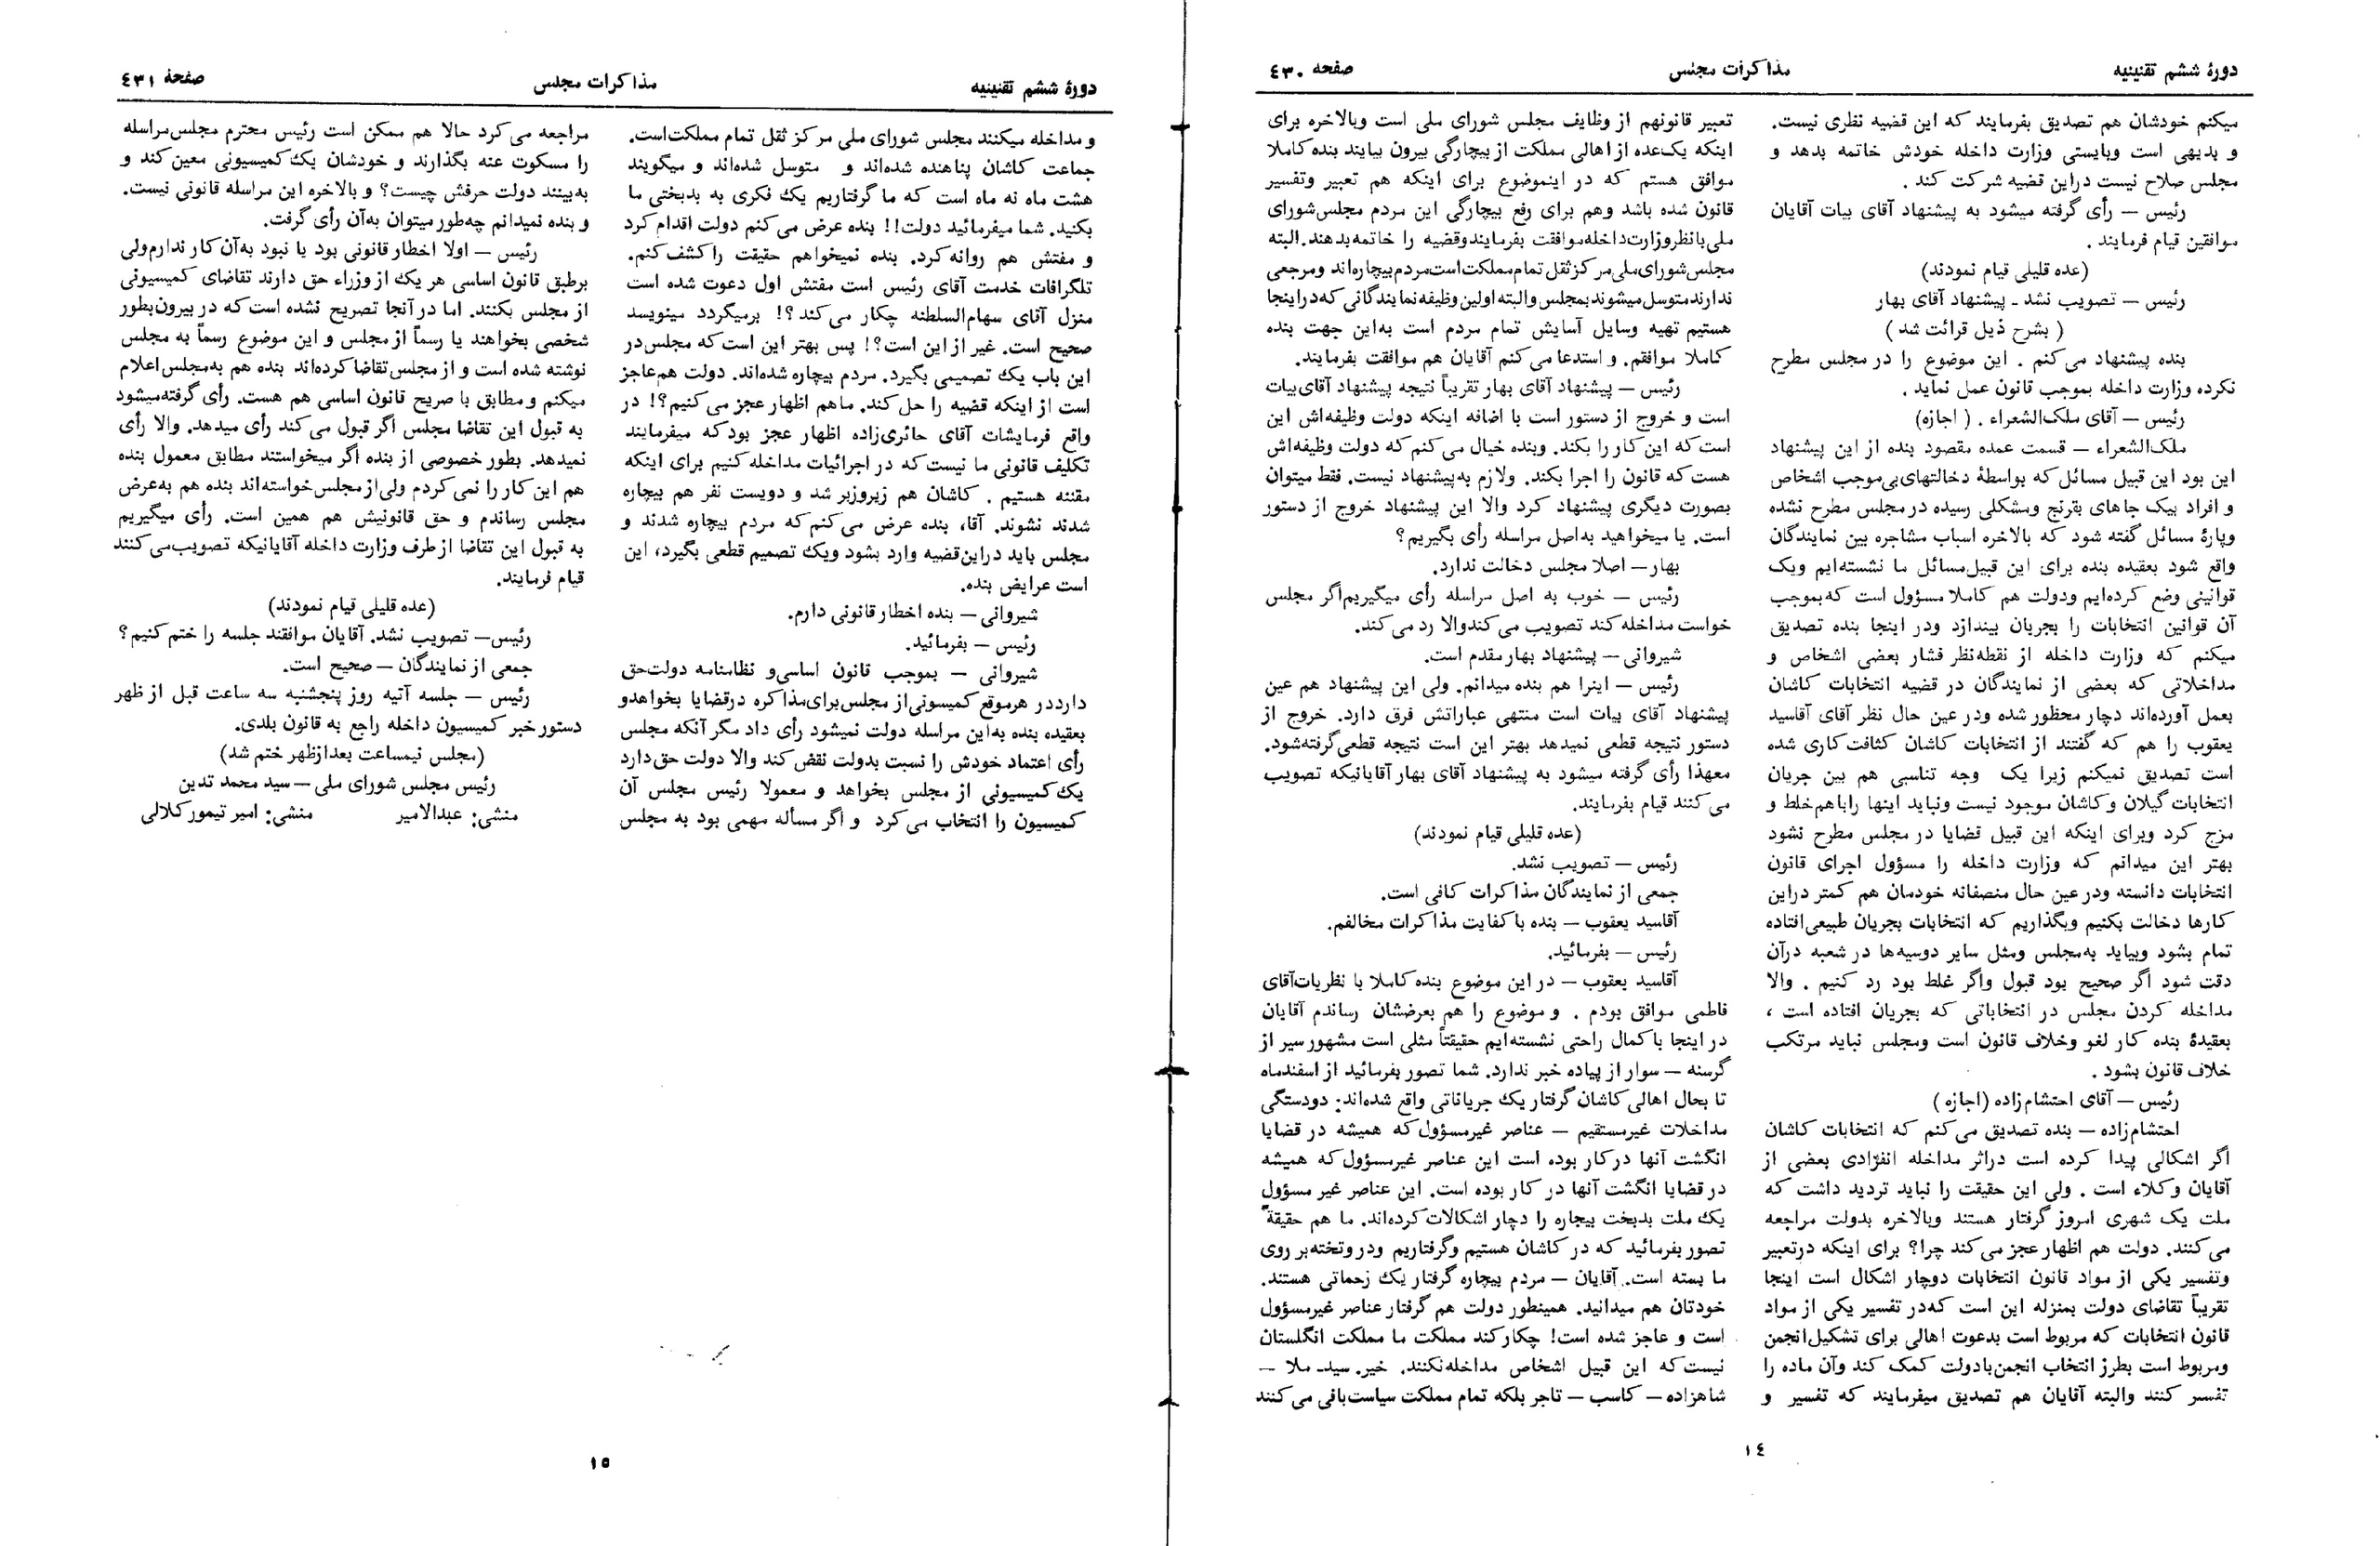 دورهٔ ششم تقنینیه
مذاکرات مجلس
صفحه ٤٣٠
میکنم خودشان هم تصدیق بفرمایند که این قضیه نظری نیست.
و بدیهی است وبایستی وزارت داخله خودش خاتمه بدهد و
مجلس صلاح نیست دراین قضیه شرکت کند .
رئیس — رأی گرفته میشود به پیشنهاد آقای بیات آقایان
موافقین قیام فرمایند .
(عده قلیلی قیام نمودند)
رئیس — تصویب نشد ـ پیشنهاد آقای بهار
( بشرح ذیل قرائت شد )
بنده پیشنهاد می‌کنم . این موضوع را در مجلس مطرح
نکرده وزارت داخله بموجب قانون عمل نماید .
رئیس — آقای ملک‌الشعراء . ( اجازه)
ملک‌الشعراء — قسمت عمده مقصود بنده از این پیشنهاد
این بود این قبیل مسائل که بواسطهٔ دخالتهای بی‌موجب اشخاص
و افراد بیک جاهای بغرنج ومشکلی رسیده در مجلس مطرح نشده
وپارهٔ مسائل گفته شود که بالاخره اسباب مشاجره بین نمایندگان
واقع شود بعقیده بنده برای این قبیل‌مسائل ما نشسته‌ایم ویک
قوانینی وضع کرده‌ایم ودولت هم کاملا مسؤول است که‌بموجب
آن قوانین انتخابات را بجریان بیندازد ودر اینجا بنده تصدیق
میکنم که وزارت داخله از نقطه‌نظر فشار بعضی اشخاص و
مداخلاتی که بعضی از نمایندگان در قضیه انتخابات کاشان
بعمل آورده‌اند دچار محظور شده ودر عین حال نظر آقای آقاسید
یعقوب را هم که گفتند از انتخابات کاشان کثافت‌کاری شده
است تصدیق نمیکنم زیرا یک وجه تناسبی هم بین جریان
انتخابات گیلان وکاشان موجود نیست ونباید اینها راباهم‌خلط و
مزج کرد وبرای اینکه این قبیل قضایا در مجلس مطرح نشود
بهتر این میدانم که وزارت داخله را مسؤول اجرای قانون
انتخابات دانسته ودر عین حال منصفانه خودمان هم کمتر دراین
کارها دخالت بکنیم وبگذاریم که انتخابات بجریان طبیعی‌افتاده
تمام بشود وبیاید به‌مجلس ومثل سایر دوسیه‌ها در شعبه درآن
دقت شود اگر صحیح بود قبول واگر غلط بود رد کنیم . والا
مداخله کردن مجلس در انتخاباتی که بجریان افتاده است ،
بعقیدهٔ بنده کار لغو وخلاف قانون است ومجلس نباید مرتکب
خلاف قانون بشود .
رئیس — آقای احتشام‌زاده (اجازه )
احتشام‌زاده — بنده تصدیق می‌کنم که انتخابات کاشان
اگر اشکالی پیدا کرده است دراثر مداخله انفرادی بعضی از
آقایان وکلاء است . ولی این حقیقت را نباید تردید داشت که
ملت یک شهری امروز گرفتار هستند وبالاخره بدولت مراجعه
می‌کنند. دولت هم اظهار عجز می‌کند چرا؟ برای اینکه درتعبیر
وتفسیر یکی از مواد قانون انتخابات دوچار اشکال است اینجا
تقریباً تقاضای دولت بمنزله این است که‌در تفسیر یکی از مواد
قانون انتخابات که مربوط است بدعوت اهالی برای تشکیل‌انجمن
ومربوط است بطرز انتخاب انجمن‌بادولت کمک کند وآن ماده را
تفسر کنند والبته آقایان هم تصدیق میفرمایند که تفسیر و
تعبیر قانونهم از وظایف مجلس شورای ملی است وبالاخره برای
اینکه یک‌عده از اهالی مملکت از بیچارگی بیرون بیایند بنده‌کاملا
موافق هستم که در اینموضوع برای اینکه هم تعبیر وتفسیر
قانون شده باشد وهم برای رفع بیچارگی این مردم مجلس‌شورای
ملی‌بانظر‌وزارت‌داخله‌موافقت بفرمایندوقضیه را خاتمه‌بدهند.البته
مجلس‌شورای‌ملی‌مرکز‌ثقل تمام‌مملکت‌است‌مردم‌بیچاره‌اند ومرجعی
ندارند‌متوسل‌میشوند‌بمجلس والبته اولین‌وظیفه‌نمایندگانی که‌دراینجا
هستیم تهیه وسایل آسایش تمام مردم است به‌این جهت بنده
کاملا موافقم. و استدعا می‌کنم آقایان هم موافقت بفرمایند.
رئیس — پیشنهاد آقای بهار تقریباً نتیجه پیشنهاد آقای‌بیات
است و خروج از دستور است با اضافه اینکه دولت وظیفه‌اش این
است که این کار را بکند. وبنده خیال می‌کنم که دولت وظیفه‌اش
هست که قانون را اجرا بکند. ولازم به‌پیشنهاد نیست. فقط میتوان
بصورت دیگری پیشنهاد کرد والا این پیشنهاد خروج از دستور
است. یا میخواهید به‌اصل مراسله رأی بگیریم؟
بهار — اصلا مجلس دخالت ندارد.
رئیس — خوب به اصل مراسله رأی میگیریم‌اگر مجلس
خواست مداخله‌کند تصویب می‌کندوالا رد می‌کند.
شیروانی — پیشنهاد بهار مقدم است.
رئیس — اینرا هم بنده میدانم. ولی این پیشنهاد هم عین
پیشنهاد آقای بیات است منتهی عباراتش فرق دارد. خروج از
دستور نتیجه قطعی نمیدهد بهتر این است نتیجه قطعی‌گرفته‌شود.
معهذا رأی گرفته میشود به پیشنهاد آقای بهار آقایانیکه تصویب
می‌کنند قیام بفرمایند.
(عده قلیلی قیام نمودند)
رئیس — تصویب نشد.
جمعی از نمایندگان مذاکرات کافی است.
آقاسید یعقوب — بنده با‌کفایت مذاکرات مخالفم.
رئیس — بفرمائید.
آقاسید یعقوب — در این موضوع بنده کاملا با نظریات‌آقای
فاطمی موافق بودم . و موضوع را هم بعرضشان رساندم آقایان
در اینجا با‌کمال راحتی نشسته‌ایم حقیقتاً مثلی است مشهور سیر از
گرسنه — سوار از پیاده خبر ندارد. شما تصور بفرمائید از اسفندماه
تا بحال اهالی‌کاشان گرفتار یک جریاناتی واقع شده‌اند: دودستگی
مداخلات غیرمستقیم — عناصر غیرمسؤول که همیشه در قضایا
انگشت آنها درکار بوده است این عناصر غیرمسؤول که همیشه
در قضایا انگشت آنها در کار بوده است. این عناصر غیر مسؤول
یک ملت بدبخت بیجاره را دچار اشکالات کرده‌اند. ما هم حقیقة
تصور بفرمائید که در کاشان هستیم وگرفتاریم ودر‌وتخته‌بر روی
ما بسته است. آقایان — مردم بیچاره گرفتار یک زحماتی هستند.
خودتان هم میدانید. همینطور دولت هم گرفتار عناصر غیرمسؤول
است و عاجز شده است! چکارکند مملکت ما مملکت انگلستان
نیست‌که این قبیل اشخاص مداخله‌نکنند. خیر. سید ـ ملا —
شاهزاده — کاسب — تاجر بلکه تمام مملکت سیاست‌بافی می‌کنند
١٤
دورهٔ ششم تقنینیه
مذاکرات مجلس
صفحهٔ ٤٣١
و مداخله میکنند مجلس شورای ملی مرکز ثقل تمام مملکت‌است.
جماعت کاشان پناهنده شده‌اند و متوسل شده‌اند و میگویند
هشت ماه نه ماه است که ما گرفتاریم یک فکری به بدبختی ما
بکنید. شما میفرمائید دولت!! بنده عرض می‌کنم دولت اقدام کرد
و مفتش هم روانه کرد. بنده نمیخواهم حقیقت را کشف کنم.
تلگرافات خدمت آقای رئیس است مفتش اول دعوت شده است
منزل آقای سهام‌السلطنه چکار می‌کند؟! برمیگردد مینویسد
صحیح است. غیر از این است؟! پس بهتر این است که مجلس‌در
این باب یک تصمیمی بگیرد. مردم بیچاره شده‌اند. دولت هم‌عاجز
است از اینکه قضیه را حل‌کند. ماهم اظهار عجز می‌کنیم؟! در
واقع فرمایشات آقای حائری‌زاده اظهار عجز بودکه میفرمایند
تکلیف قانونی ما نیست که در اجرائیات مداخله کنیم برای اینکه
مقننه هستیم . کاشان هم زیروزبر شد و دویست نفر هم بیچاره
شدند نشوند. آقا، بنده عرض می‌کنم‌که مردم بیچاره شدند و
مجلس باید دراین‌قضیه وارد بشود ویک تصمیم قطعی بگیرد، این
است عرایض بنده.
شیروانی — بنده اخطار قانونی دارم.
رئیس — بفرمائید.
شیروانی — بموجب قانون اساسی‌و نظامنامه دولت‌حق
دارددر هرموقع کمیسونی‌از مجلس‌برای‌مذاکره درقضایا بخواهدو
بعقیده بنده به‌این مراسله دولت نمیشود رأی داد مگر آنکه مجلس
رأی اعتماد خودش را نسبت بدولت نقض کند والا دولت حق‌دارد
یک‌کمیسیونی از مجلس بخواهد و معمولا رئیس مجلس آن
کمیسیون را انتخاب می‌کرد و اگر مسأله مهمی بود به مجلس
مراجعه می‌کرد حالا هم ممکن است رئیس محترم مجلس‌مراسله
را مسکوت عنه بگذارند و خودشان یک‌کمیسیونی معین‌کند و
به‌بینند دولت حرفش چیست؟ و بالاخره این مراسله قانونی نیست.
و بنده نمیدانم چه‌طور میتوان به‌آن رأی گرفت.
رئیس — اولا اخطار قانونی بود یا نبود به‌آن‌کار ندارم‌ولی
برطبق قانون اساسی هر یک از وزراء حق دارند تقاضای کمیسیونی
از مجلس بکنند. اما در آنجا تصریح نشده است‌که در بیرون‌بطور
شخصی بخواهند یا رسماً از مجلس و این موضوع رسماً به مجلس
نوشته شده است و از مجلس‌تقاضا کرده‌اند بنده هم به‌مجلس‌اعلام
میکنم و مطابق با صریح قانون اساسی هم هست. رأی گرفته‌میشود
به قبول این تقاضا مجلس اگر قبول می‌کند رأی میدهد. والا رأی
نمیدهد. بطور خصوصی از بنده اگر میخواستند مطابق معمول بنده
هم این‌کار را نمی‌کردم ولی‌از مجلس‌خواسته‌اند بنده هم به‌عرض
مجلس رساندم و حق قانونیش هم همین است. رأی میگیریم
به قبول این تقاضا از طرف وزارت داخله آقایانیکه تصویب‌می‌کنند
قیام فرمایند.
(عده قلیلی قیام نمودند)
رئیس — تصویب نشد. آقایان موافقند جلسه را ختم کنیم؟
جمعی از نمایندگان — صحیح است.
رئیس — جلسه آتیه روز پنجشنبه سه ساعت قبل از ظهر
دستور خبر کمیسیون داخله راجع به قانون بلدی.
(مجلس نیمساعت بعدازظهر ختم شد)
رئیس مجلس شورای ملی — سید محمد تدین
منشی: عبدالامیر
منشی: امیر تیمور کلالی
١٥